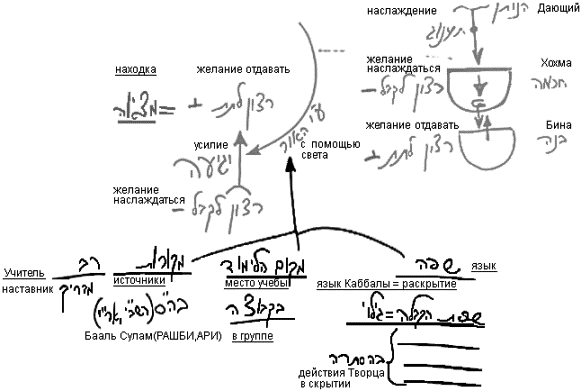 наслаждение הנותן Дающий
תענוג
желание наслаждаться Хохма
רצון לקבל – חכמה
желание отдавать Бина
רצון לתת + בנה
находка желание отдавать
מציאה = + רצון לתת
усилие
יגיעה
с помощью света
ע"י האור
желание наслаждаться
– רצון לקבל
רב מקורות מקום הלימוד שפה язык
Учитель источники место учебы язык Каббалы = раскрытие
наставник
מדריך בה"ס (רשב"י, אר"י) בקבוצה שפת הקבלה = גילוי
Бааль Сулам(РАШБИ,АРИ) в группе
בהסתרה
действия Творца в скрытии